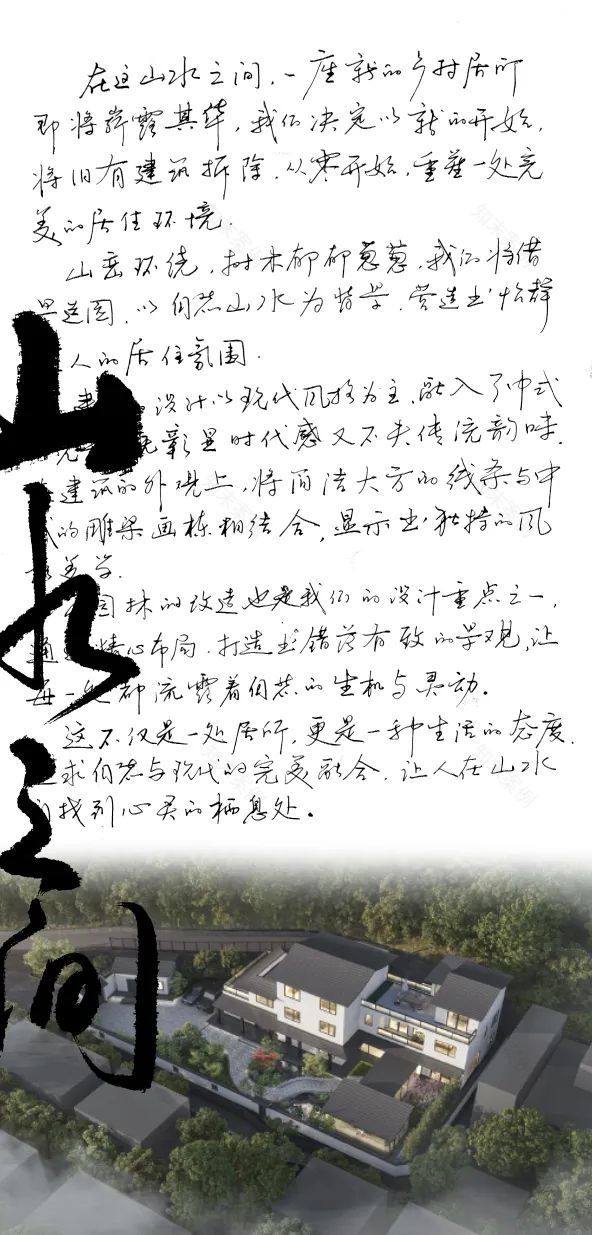 在这山水之间，一座新的乡村居所
即将崭露其华，我们决定以新的开始，
将旧有建筑拆除，从零开始，重塑一处完
美的居住环境.
山峦环绕，树木郁郁葱葱，我们将借
景造园，以自然山水为背景，营造出怡静
人的居住氛围.
设计以现代风格为主，融入了中式
彰显时代感又不失传统韵味.
建筑的外观上，将简洁大方的线条与中
式的雕梁画栋相结合，显示出独特的风
美学.
园林的改造也是我们的设计重点之一，
通过精心布局，打造出错落有致的景观，让
每一处都流露着自然的生机与灵动。
这不仅是一处居所，更是一种生活的态度.
求自然与现代的完美融合，让人在山水
间找到心灵的栖息处。
山水之间